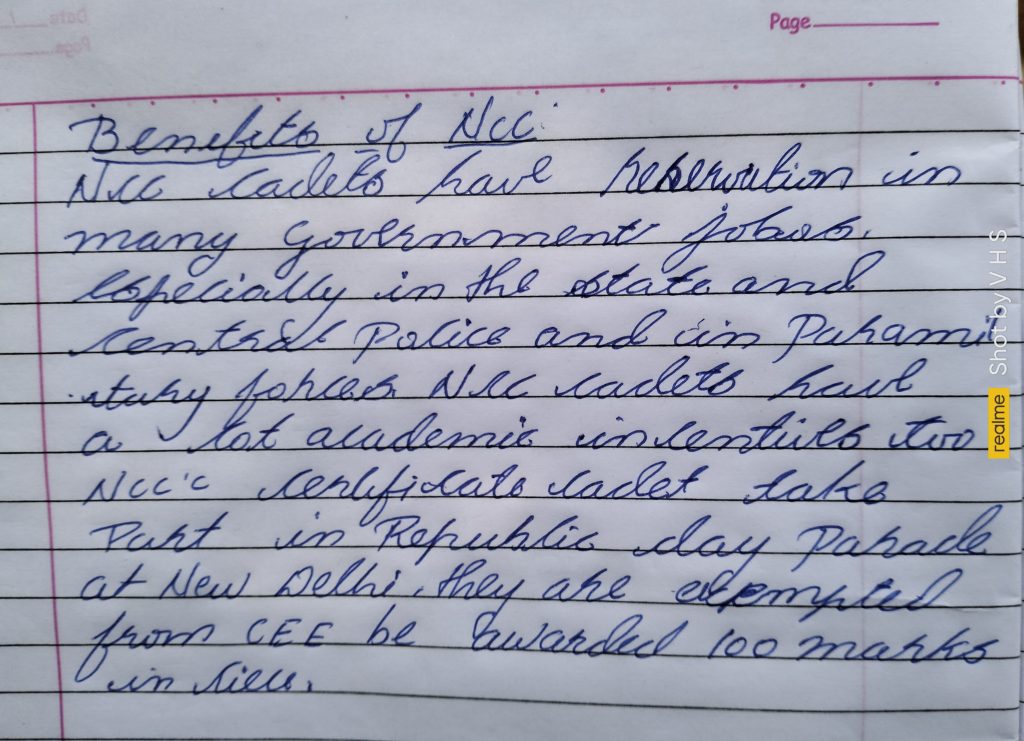 Page
Benefits of NCC.
NCC cadets have reservation in
many government jobs.
especially in the state and
central police and in Parami
tary forces NCC cadets have
a lot academic incentives too
NCC'C certificate cadet take
Part in Republic day parade
at New Delhi. they are exempted
from CEE be awarded 100 marks
in lieu.
realme Shot by VHS
Date
Page